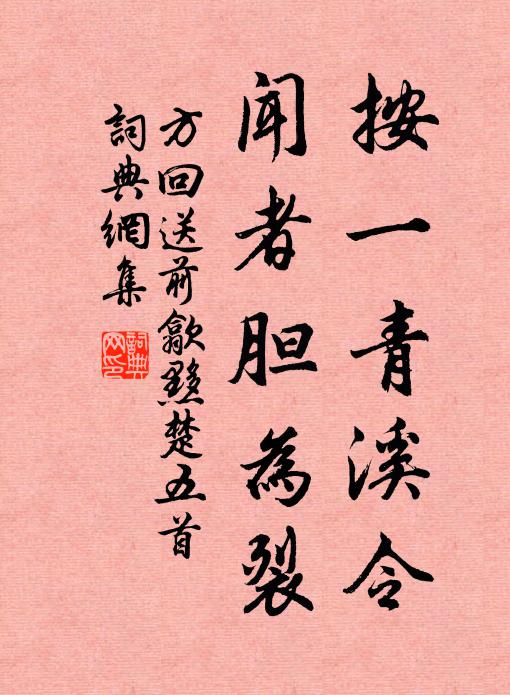 按一青溪令
闻者胆為裂
方回送前歙黟楚五首
詞典網集
詞典网印